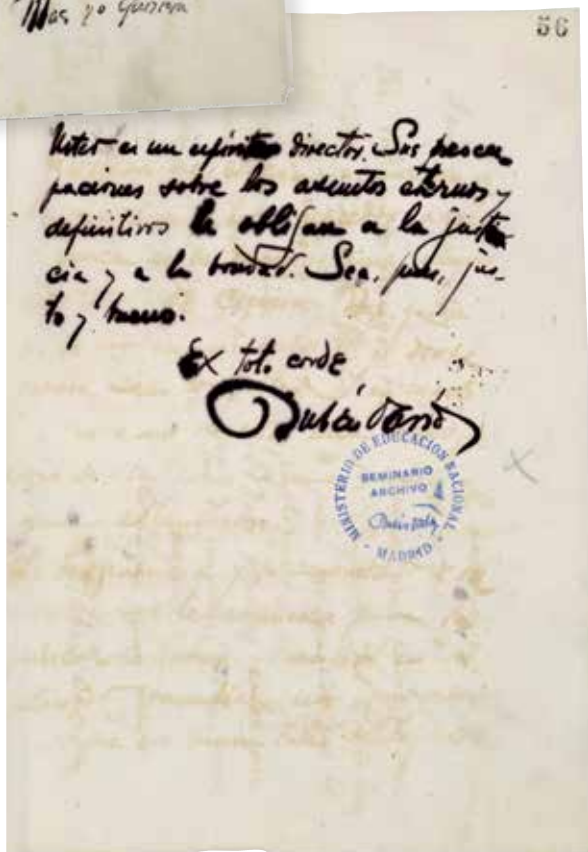 Mas yo quisiera
56
Usted es un espíritu director. Sus preocu-
paciones sobre los asuntos eternos y
definitivos le obligan a la justi-
cia y a la bondad. Sea, pues, jus-
to y bueno.
Ex toto corde
Rubén Darío
MINISTERIO DE EDUCACION NACIONAL
SEMINARIO
ARCHIVO
Rubén Darío
MADRID